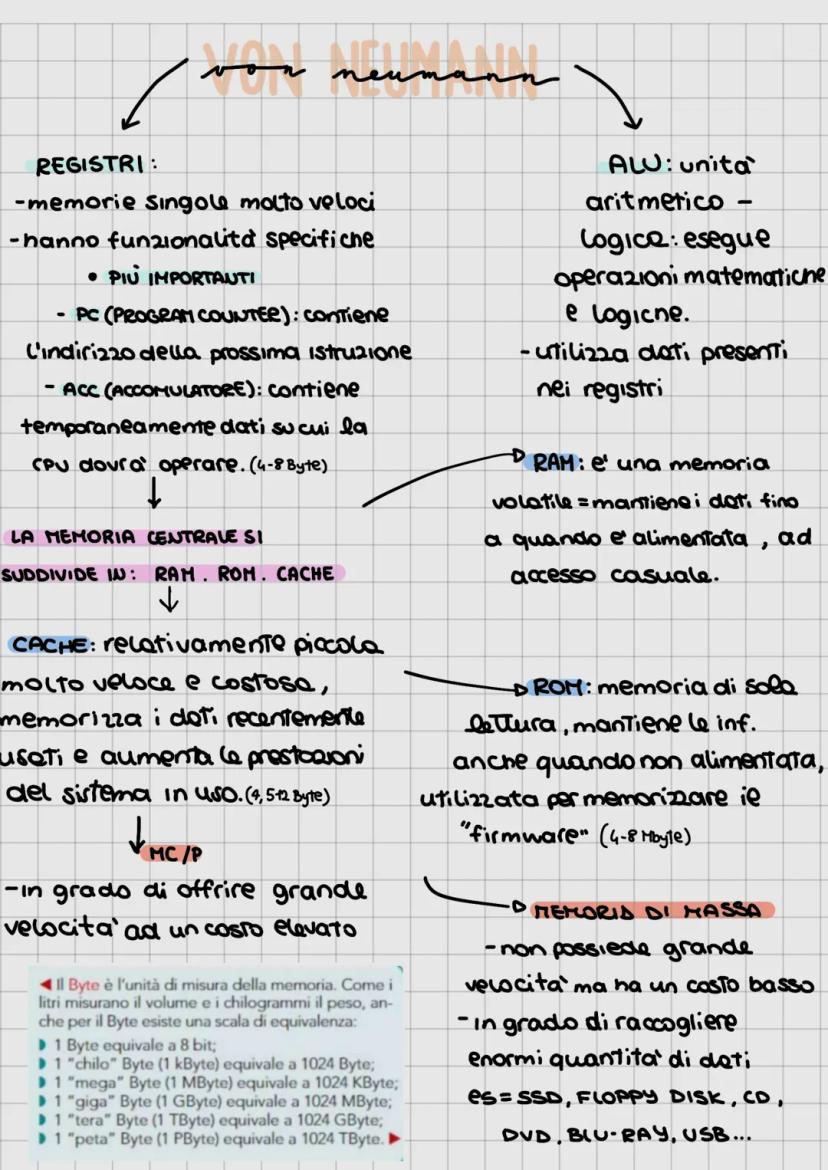 VON NEUMANN
von neumann
REGISTRI:
-memorie singole molto veloci
-hanno funzionalità specifiche
• PIÙ IMPORTANTI
- PC (PROGRAM COUNTER): contiene
l'indirizzo della prossima istruzione
- ACC (ACCOMULATORE): contiene
temporaneamente dati su cui la
CPU dovra' operare. (4-8 Byte)
LA MEMORIA CENTRALE SI
SUDDIVIDE IN: RAM. ROM. CACHE
CACHE: relativamente piccola
molto veloce e costosa,
memorizza i dati recentemente
usati e aumenta le prestazioni
del sistema in uso. (4, 512 Byte)
MC/P
-in grado di offrire grande
velocita' ad un costo elevato
◀ Il Byte è l'unità di misura della memoria. Come i
litri misurano il volume e i chilogrammi il peso, an-
che per il Byte esiste una scala di equivalenza:
1 Byte equivale a 8 bit;
1 "chilo" Byte (1 kByte) equivale a 1024 Byte;
1 "mega" Byte (1 MByte) equivale a 1024 KByte;
1 "giga" Byte (1 GByte) equivale a 1024 MByte;
1 "tera" Byte (1 TByte) equivale a 1024 GByte;
1 "peta" Byte (1 PByte) equivale a 1024 TByte. ▶
ALU: unita'
aritmetico -
logica: esegue
operazioni matematiche
e logicne.
-utilizza dati presenti
nei registri
RAM: e' una memoria
volatile = mantiene i dati fino
a quando e' alimentata, ad
accesso casuale.
ROM: memoria di sola
lettura, mantiene le inf.
anche quando non alimentata,
utilizzata per memorizzare ie
"firmware" (4-8 Mbyte)
MEMORIA DI MASSA
-non possiede grande
velocita' ma ha un costo basso
-in grado di raccogliere
enormi quantita' di dati
es= SSD, FLOPPY DISK, CD,
DVD, BLU-RAY, USB...